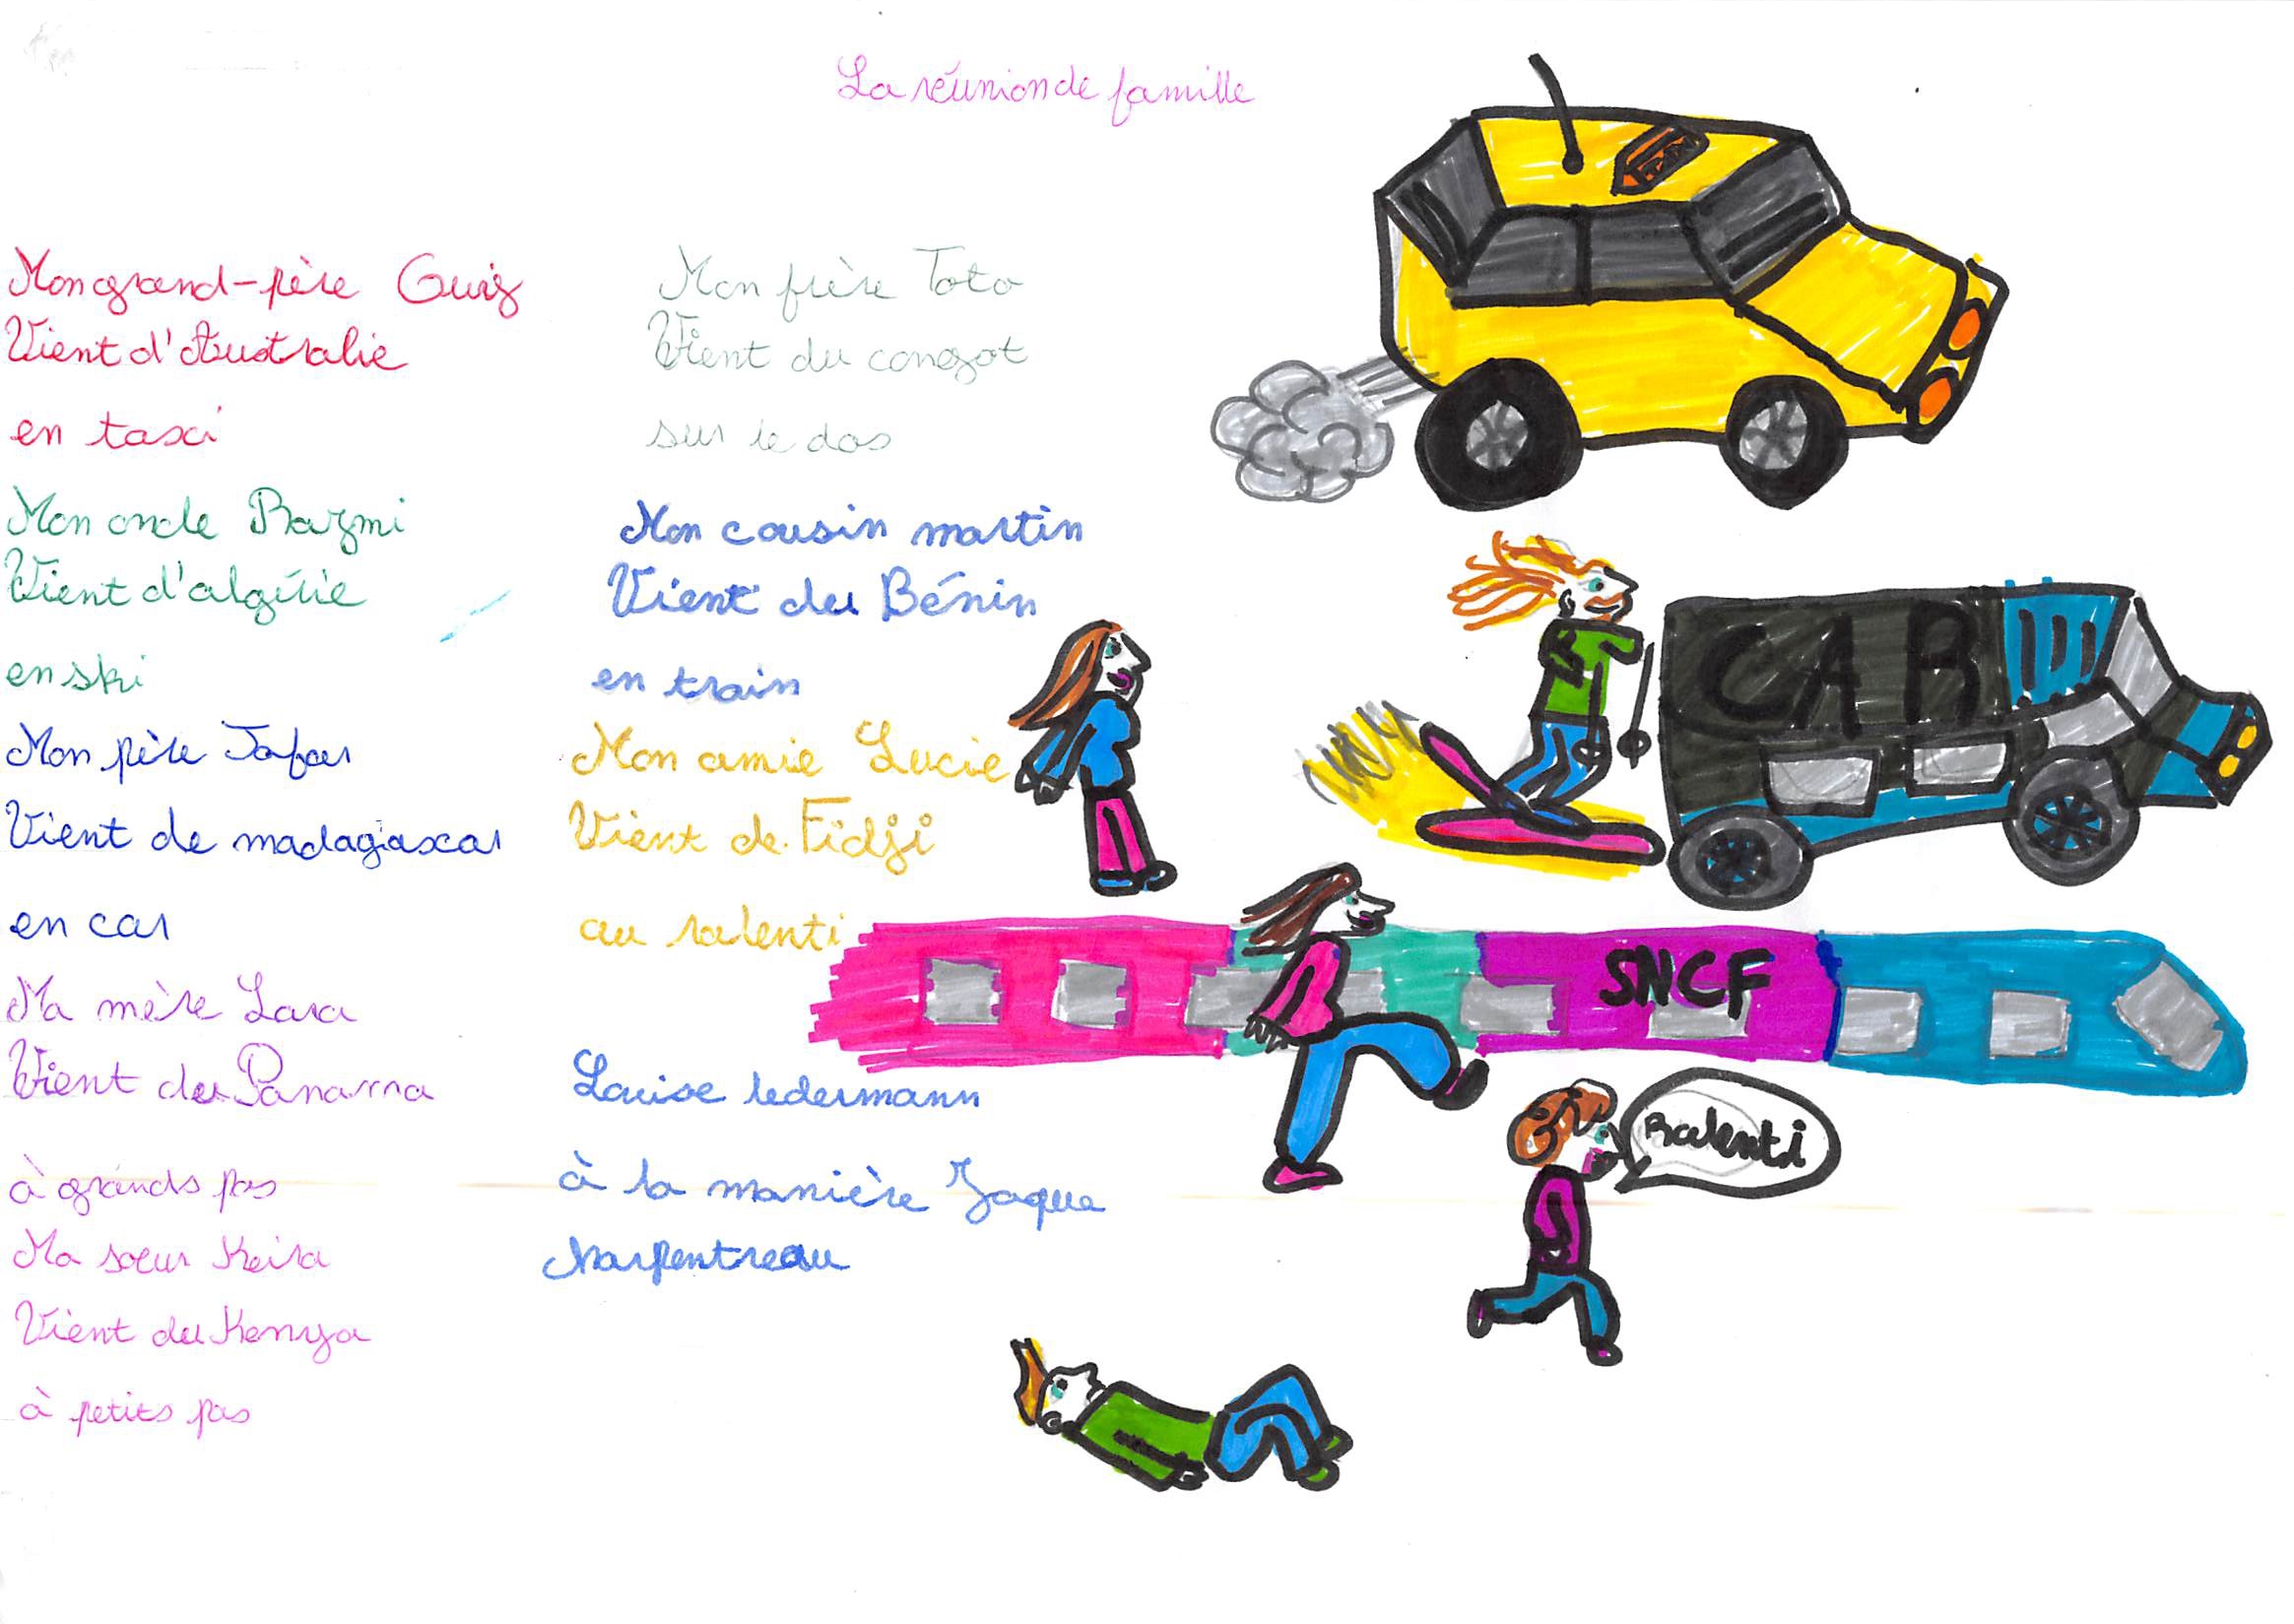 La réunion de famille
Mon grand-père Guiz
Vient d'Australie
en taxi
Mon oncle Razmi
Vient d'algérie
en ski
Mon père Jafar
Vient de madagascar
en car
Ma mère Lara
Vient du Panama
à grands pas
Ma soeur Keira
Vient du Kenya
à petits pas
Mon frère Toto
Vient du congot
sur le dos
Mon cousin martin
Vient du Bénin
en train
Mon amie Lucie
Vient de Fidji
au ralenti
Louise ledermann
à la manière Jaque
Charpentreau
TAXI
CAR
SNCF
Ralenti